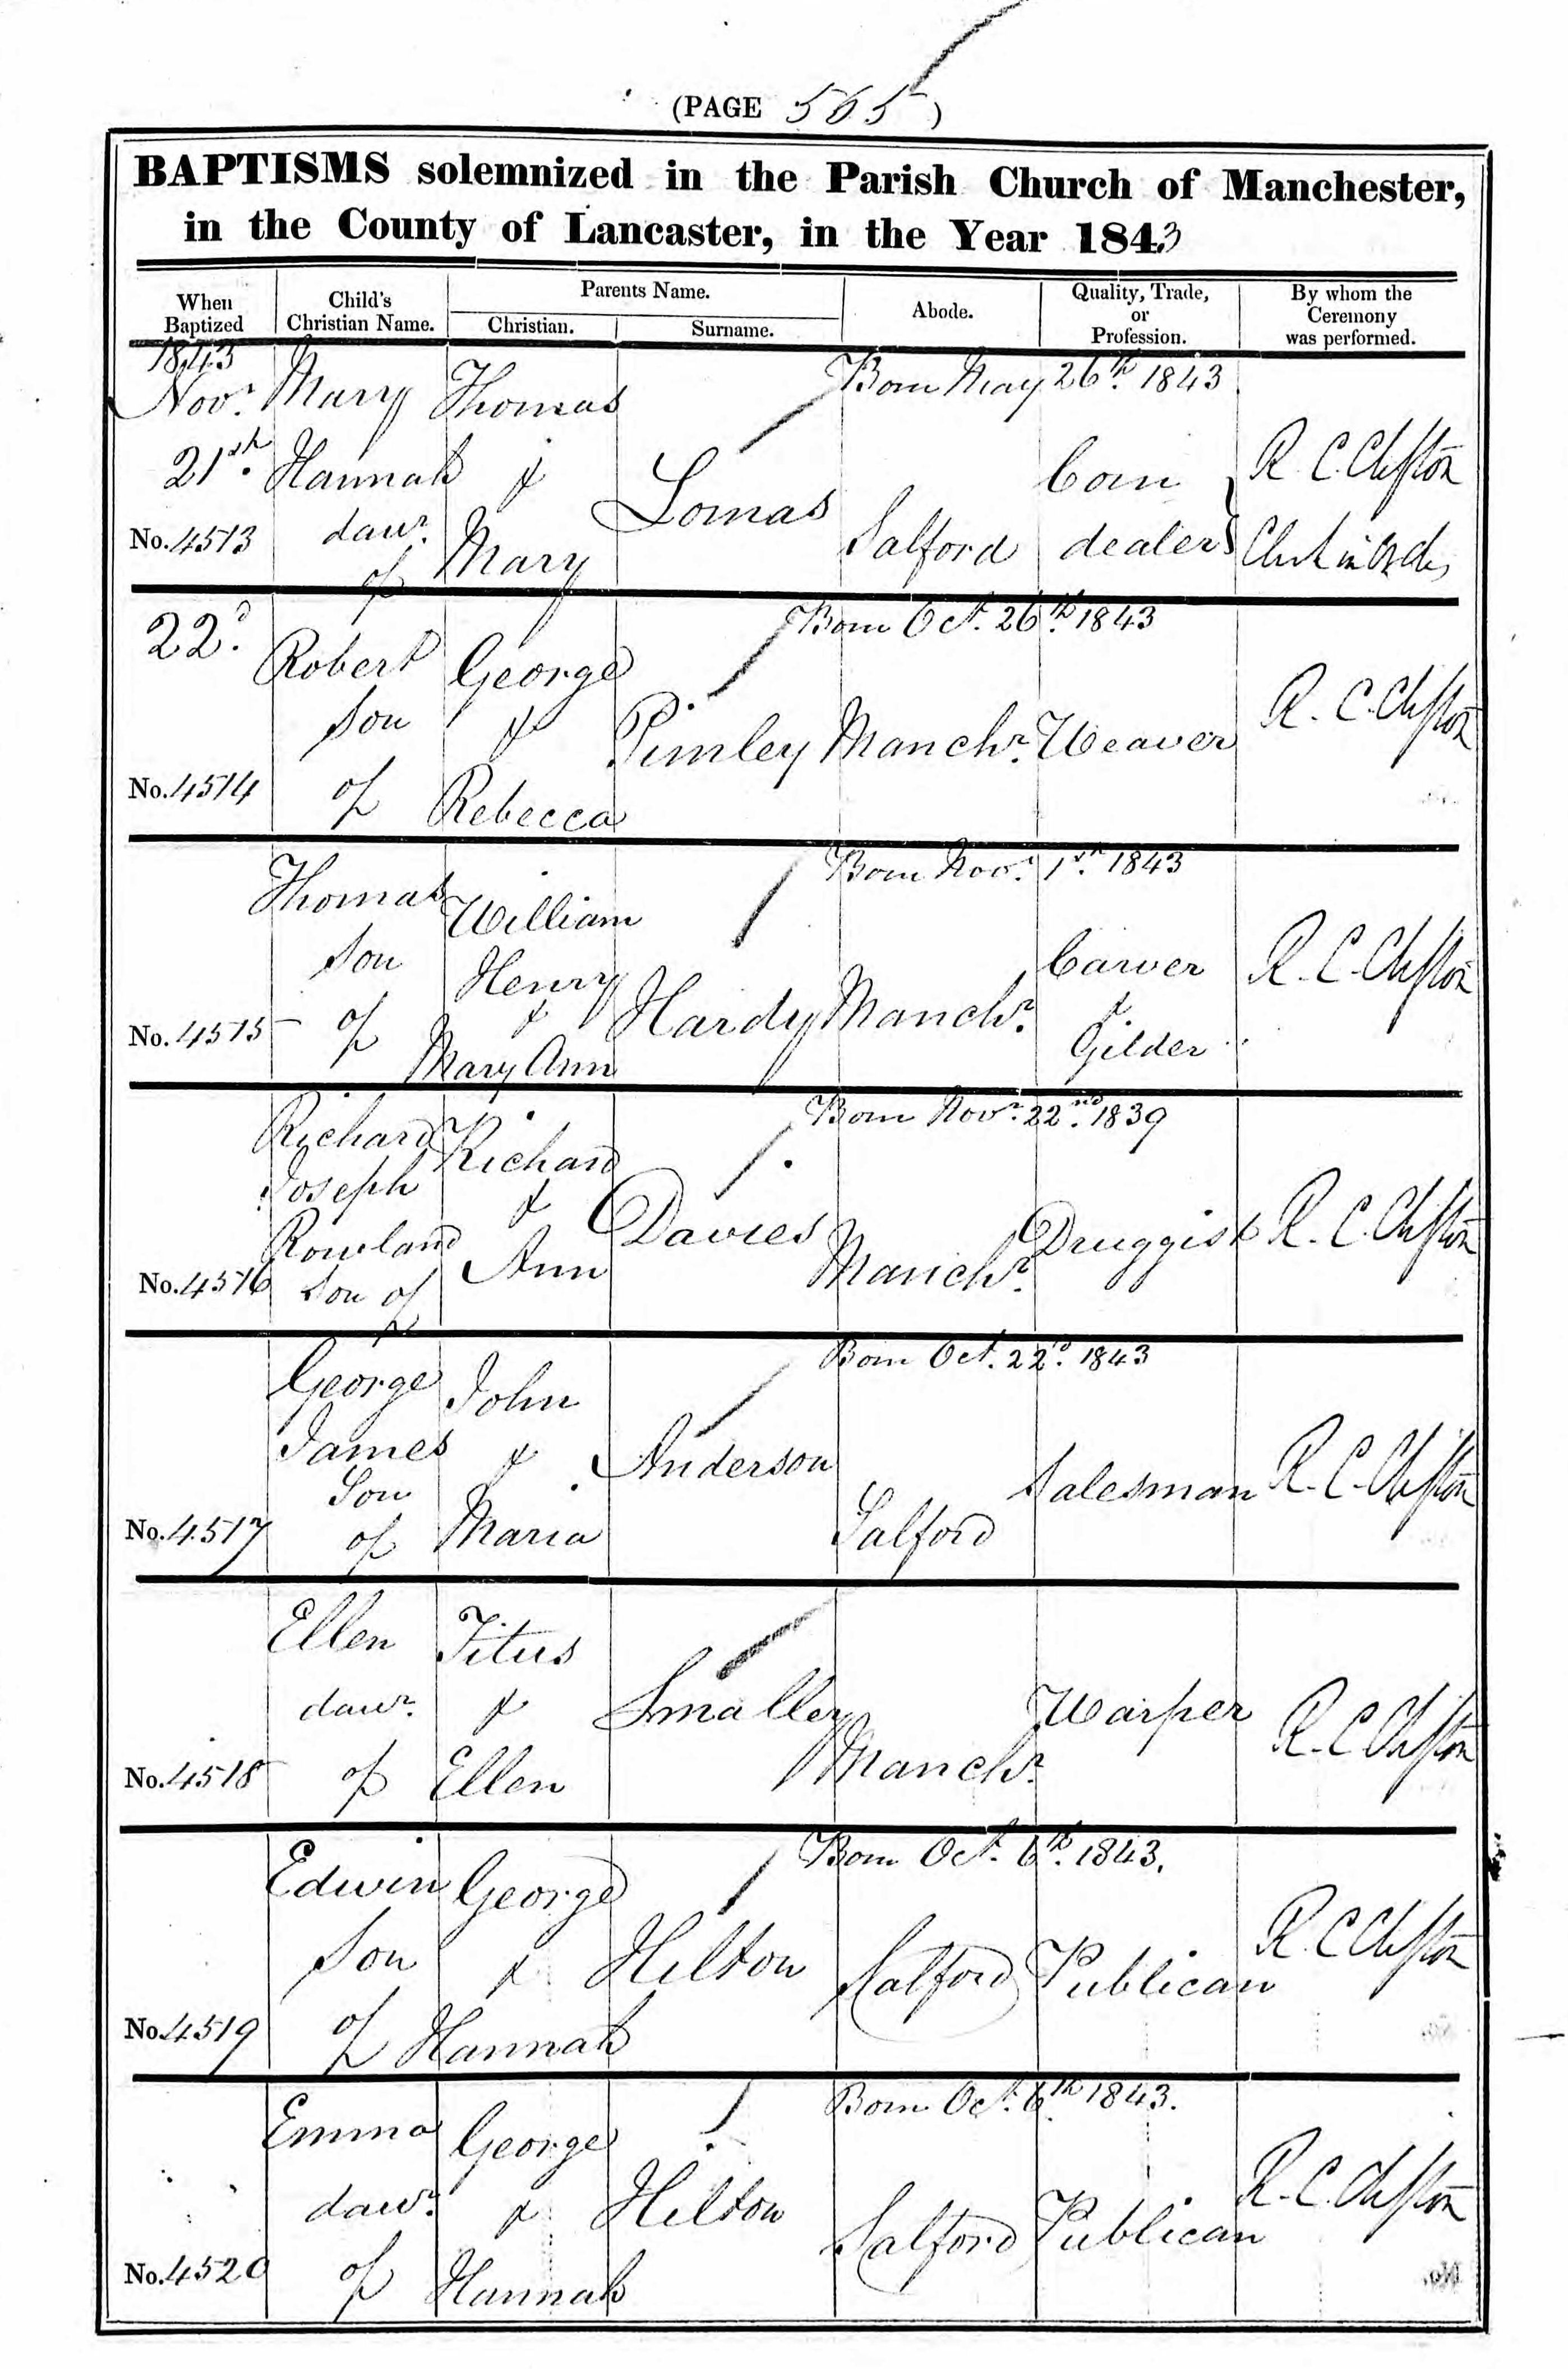 (PAGE 565)
BAPTISMS solemnized in the Parish Church of Manchester,
in the County of Lancaster, in the Year 1843
When Baptized
Child's Christian Name.
Parents Name.
Christian.
Surname.
Abode.
Quality, Trade, or Profession.
By whom the Ceremony was performed.
1843
Novr. 21st.
No. 4513
Mary Hannah dawr. of
Thomas & Mary
Lomas
Born May 26th. 1843
Salford
dealer
R. C. Clifton
Clerk in Orders
22d.
No. 4514
Robert son of
George & Rebecca
Pimley
Born Oct. 26th. 1843
Manchr.
Weaver
R. C. Clifton
No. 4515
Thomas son of
William Henry & Mary Ann
Hardy
Born Novr. 1st. 1843
Manchr.
Carver & Gilder
R. C. Clifton
No. 4516
Richard Joseph Rowland Son of
Richard & Ann
Davies
Born Novr. 22nd. 1839
Manchr.
Druggist
R. C. Clifton
No. 4517
George James Son of
John & Maria
Anderson
Born Oct. 22d. 1843
Salford
Salesman
R. C. Clifton
No. 4518
Ellen dawr. of
Titus & Ellen
Smalley
Manchr.
Warper
R. C. Clifton
No. 4519
Edwin son of
George & Hannah
Hilton
Born Oct. 6th. 1843.
Salford
Publican
R. C. Clifton
No. 4520
Emma dawr. of
George & Hannah
Hilton
Born Oct. 6th 1843.
Salford
Publican
R. C. Clifton